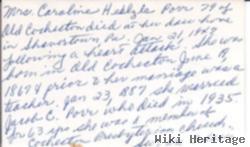 Mrs. Caroline Heslyle Porr 79 of
Old Cochecton died at her dau home
in Shavertown Pa. Jan 21, 1947
following a heart attack. She was
born in Old Cochecton June 9,
1867 & prior to her marriage was a
teacher. Jan 23, 1887 she married
Jacob C. Porr who died in 1935.
For 63 yrs she was a member of
Cochecton Presbyterian church.
Wiki Herritage